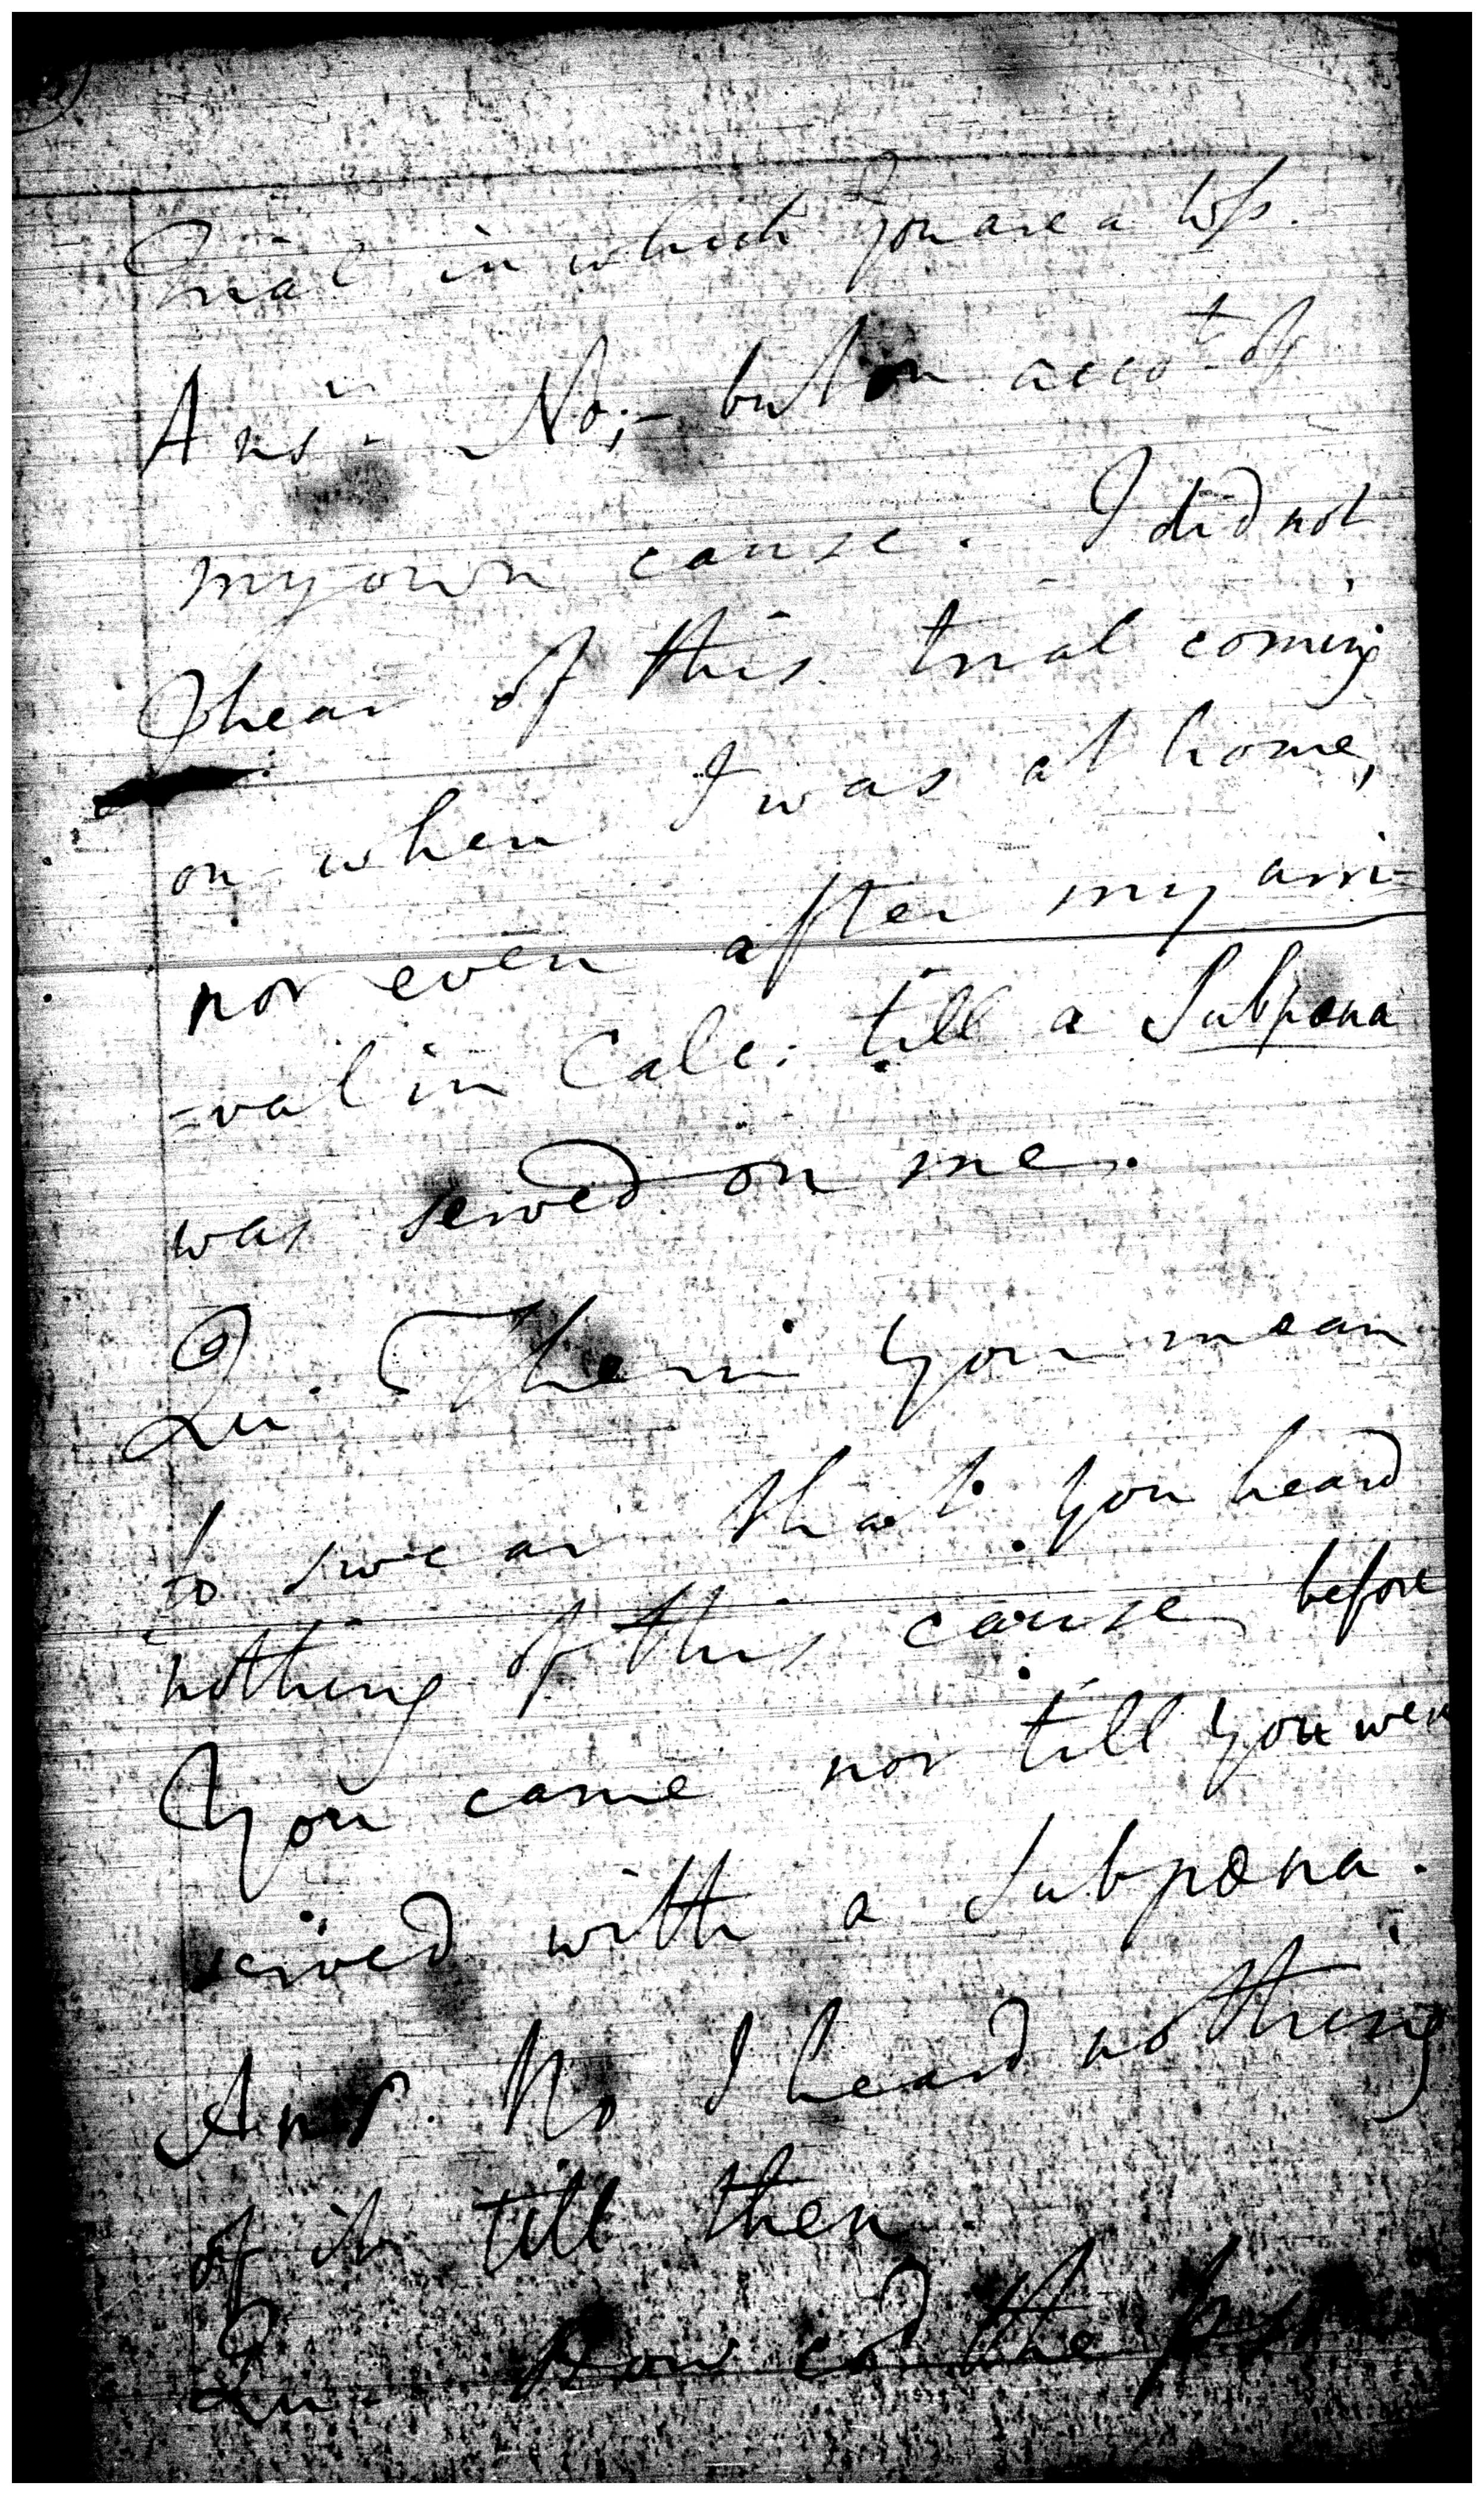 Trial in which you are a Wss.
Ansr. No; – but on accot. of
my own cause. I did not
hear of this trial coming
on when I was at home,
nor even after my arri-
=val in Calc: till a Subpœna
was served on me.
Qu. Then you mean
to swear that you heard
nothing of this cause before
you came nor till you were
served with a Subpœna.
Ansr. No I heard nothing
of it till then.
Qu. How cd. the